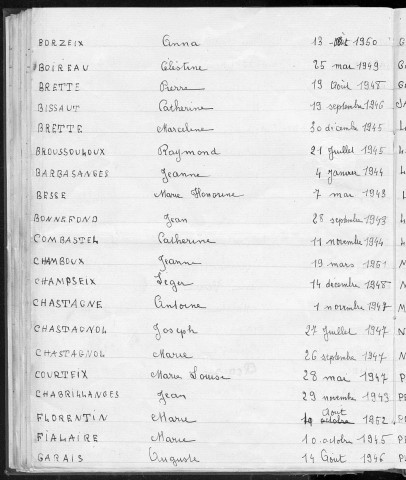 BORZEIX Anna 13 1950
BOIREAU Célestine 25 mai 1949
BRETTE Pierre 19 Août 1948
BISSAUT Catherine 19 septembre 1946
BRETTE Marceline 30 décembre 1945
BROUSSOULOUX Raymond 21 Juillet 1945
BARBASANGES Jeanne 4 janvier 1944
BESSE Marie Honorine 7 mai 1943
BONNEFOND Jean 28 septembre 1943
COMBASTEL Catherine 11 novembre 1944
CHAMBOUX Jeanne 19 mars 1951
CHAMPSEIX Léger 14 décembre 1948
CHASTAGNE Antoine 1 novembre 1947
CHASTAGNOL Joseph 27 Juillet 1947
CHASTAGNOL Marie 26 septembre 1947
COURTEIX Marie Louise 28 mai 1947
CHABRILLANGES Jean 29 novembre 1943
Aout
FLORENTIN Marie 19 octobre 1952
FIALAIRE Marie 10 octobre 1945
GARAIS Auguste 14 Aout 1946